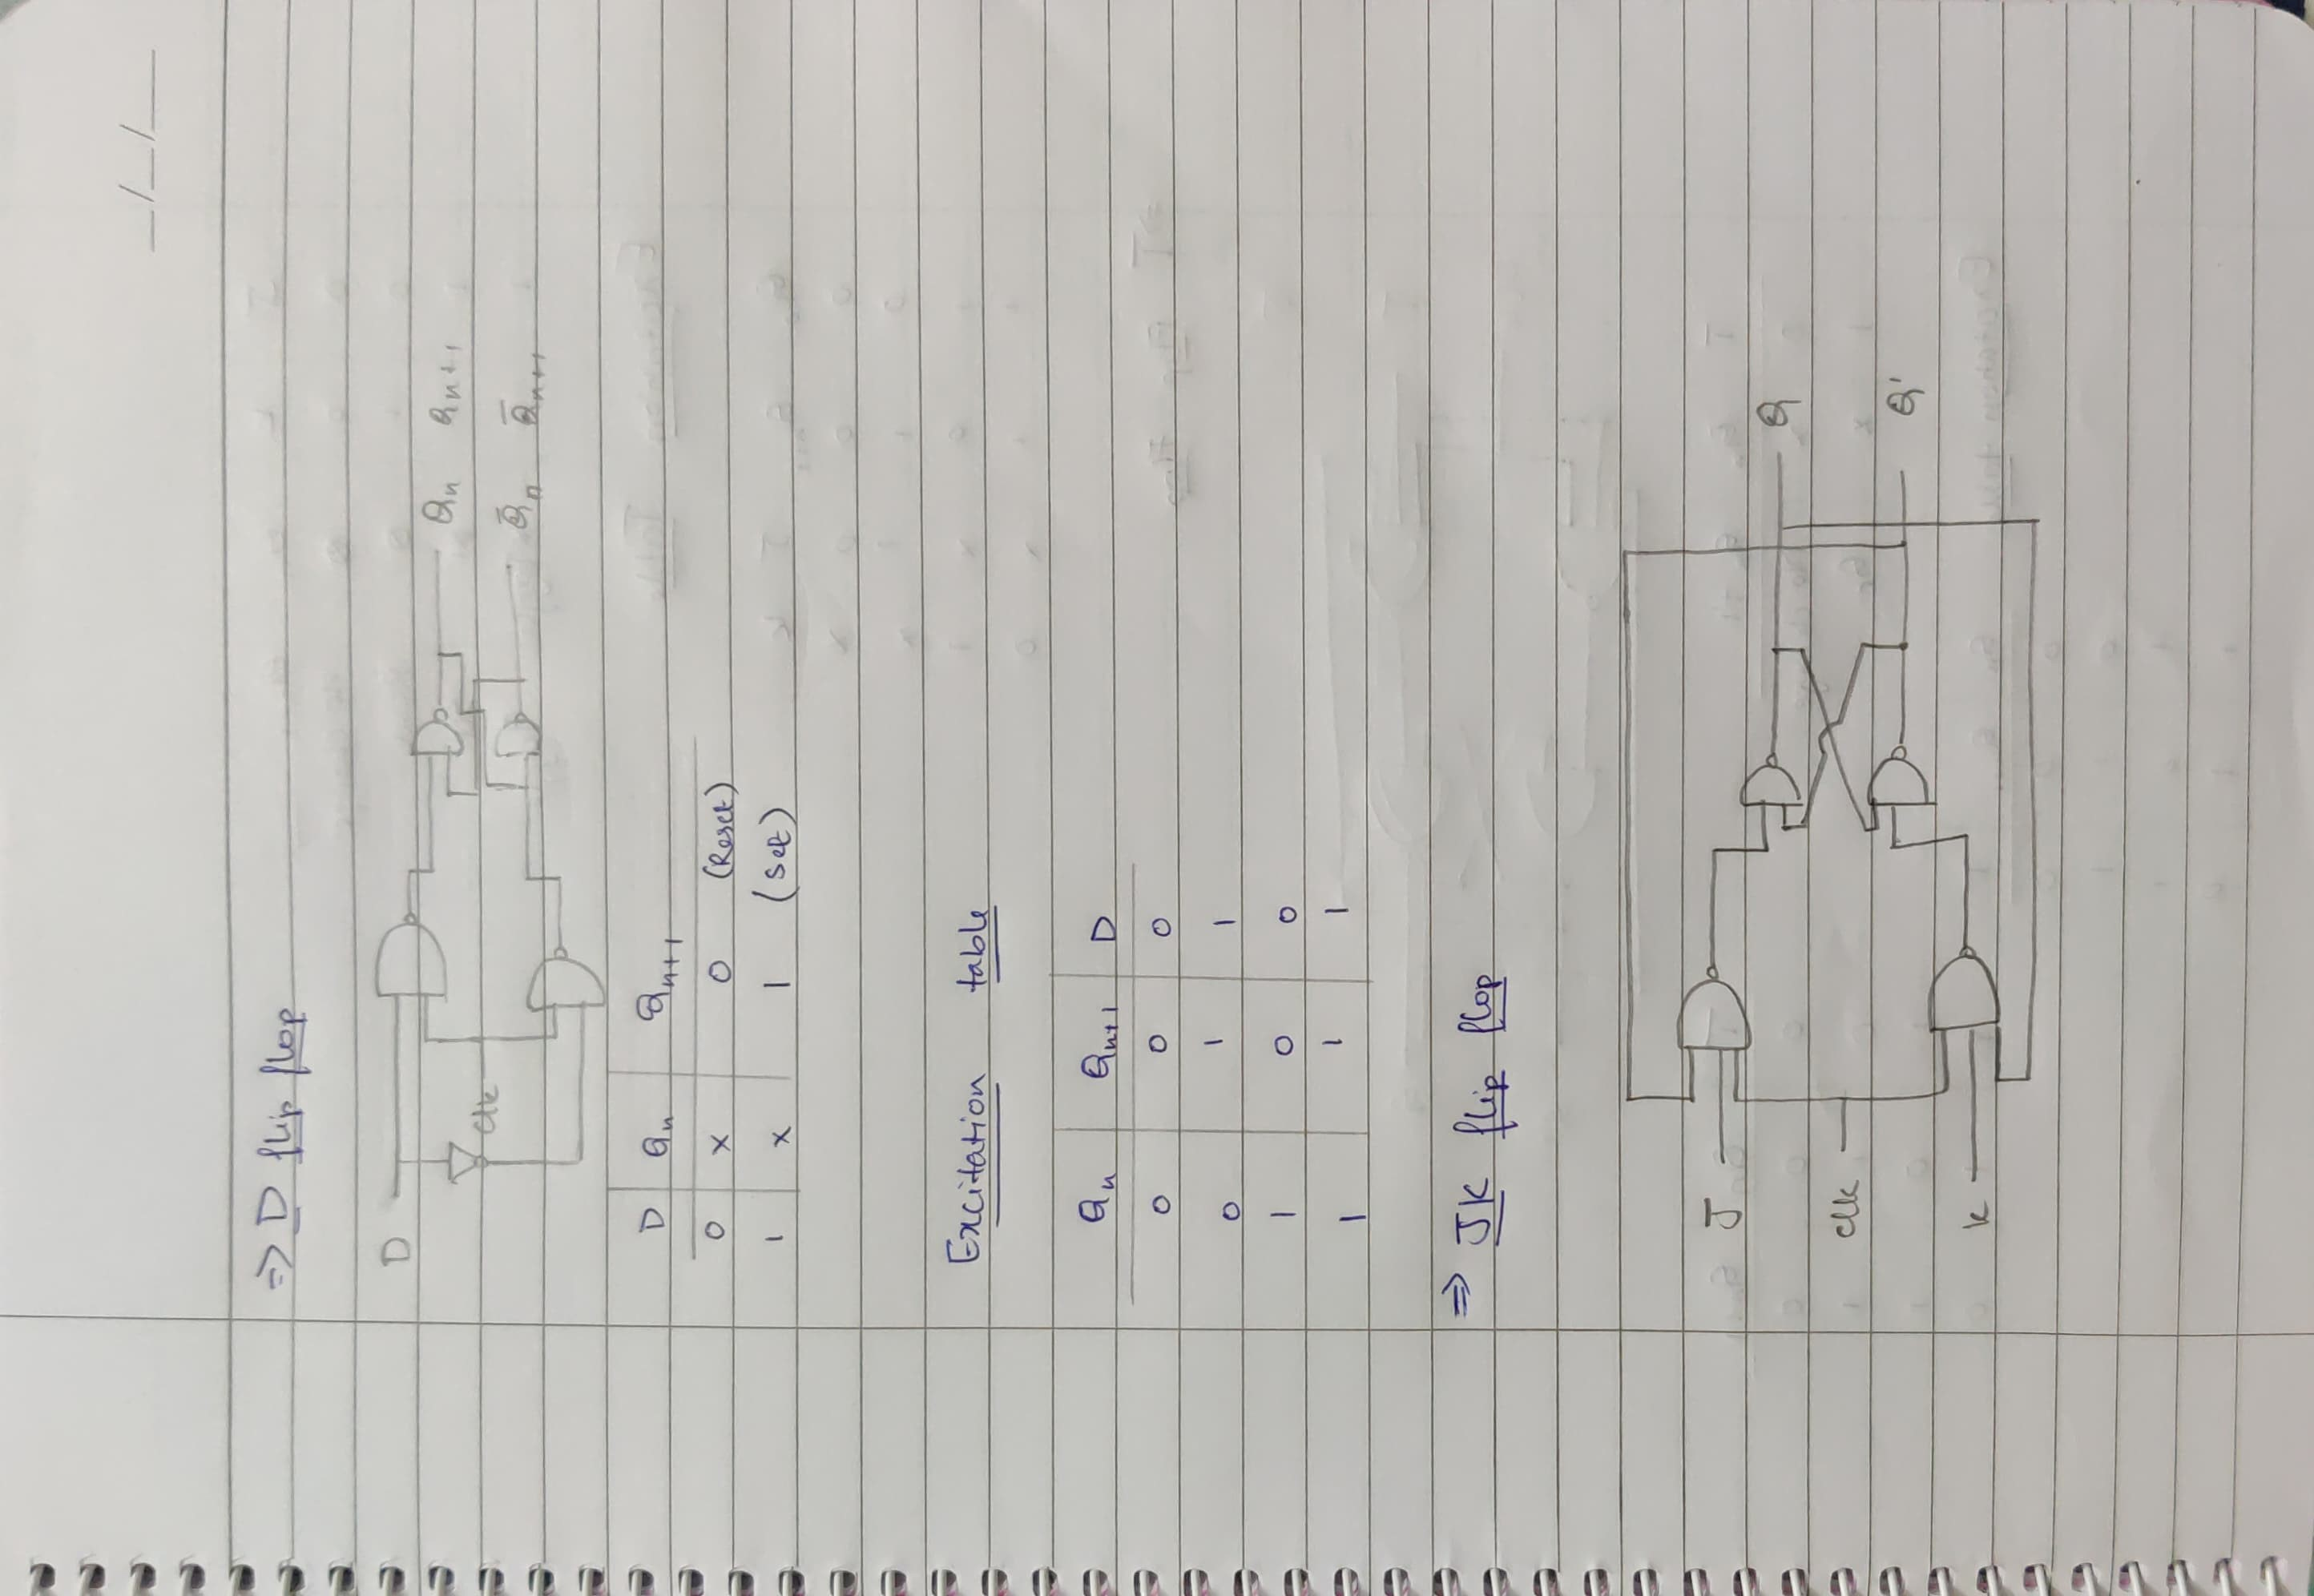 __/__/__
⇒ D flip flop
D
clk
Qn Qn+1
Q̄n Q̄n+1
D Qn Qn+1
0 x 0 (Reset)
1 x 1 (set)
Excitation table
Qn Qn+1 D
0 0 0
0 1 1
1 0 0
1 1 1
⇒ JK flip flop
J
Q
clk
Q'
K